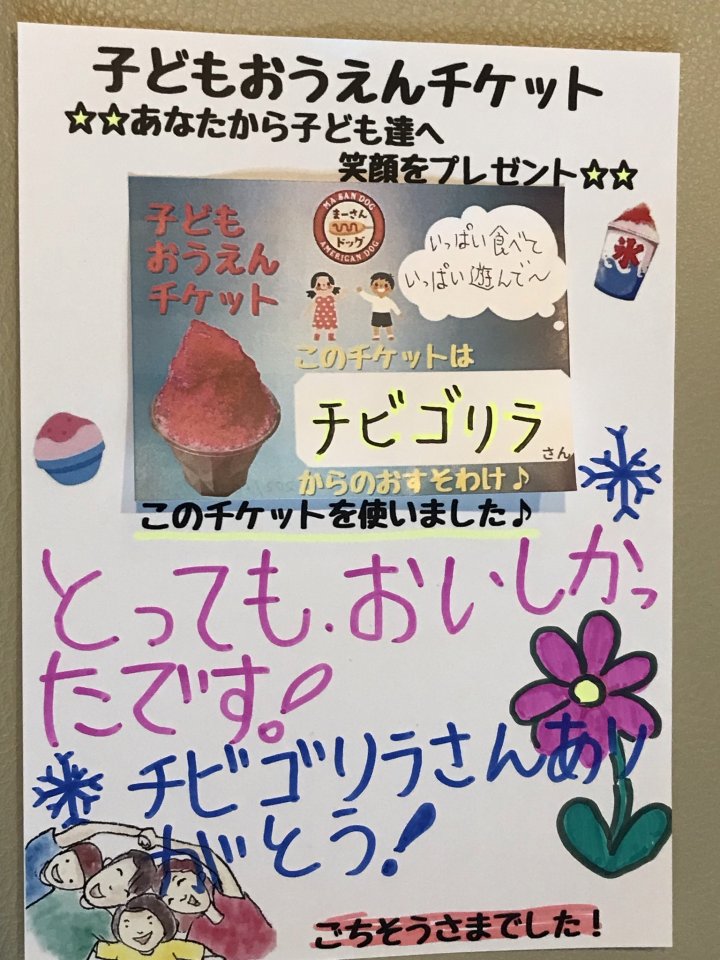 子どもおうえんチケット
☆☆あなたから子ども達へ
笑顔をプレゼント☆☆
子ども
おうえん
チケット
MA SAN DOG
まーさん
ドッグ
AMERICAN DOG
いっぱい食べて
いっぱい遊んで〜
氷
このチケットは
チビゴリラ
さん
からのおすそわけ♪
このチケットを使いました♪
とっても.おいしかっ
たです。!
チビゴリラさんあり
がとう!
ごちそうさまでした!